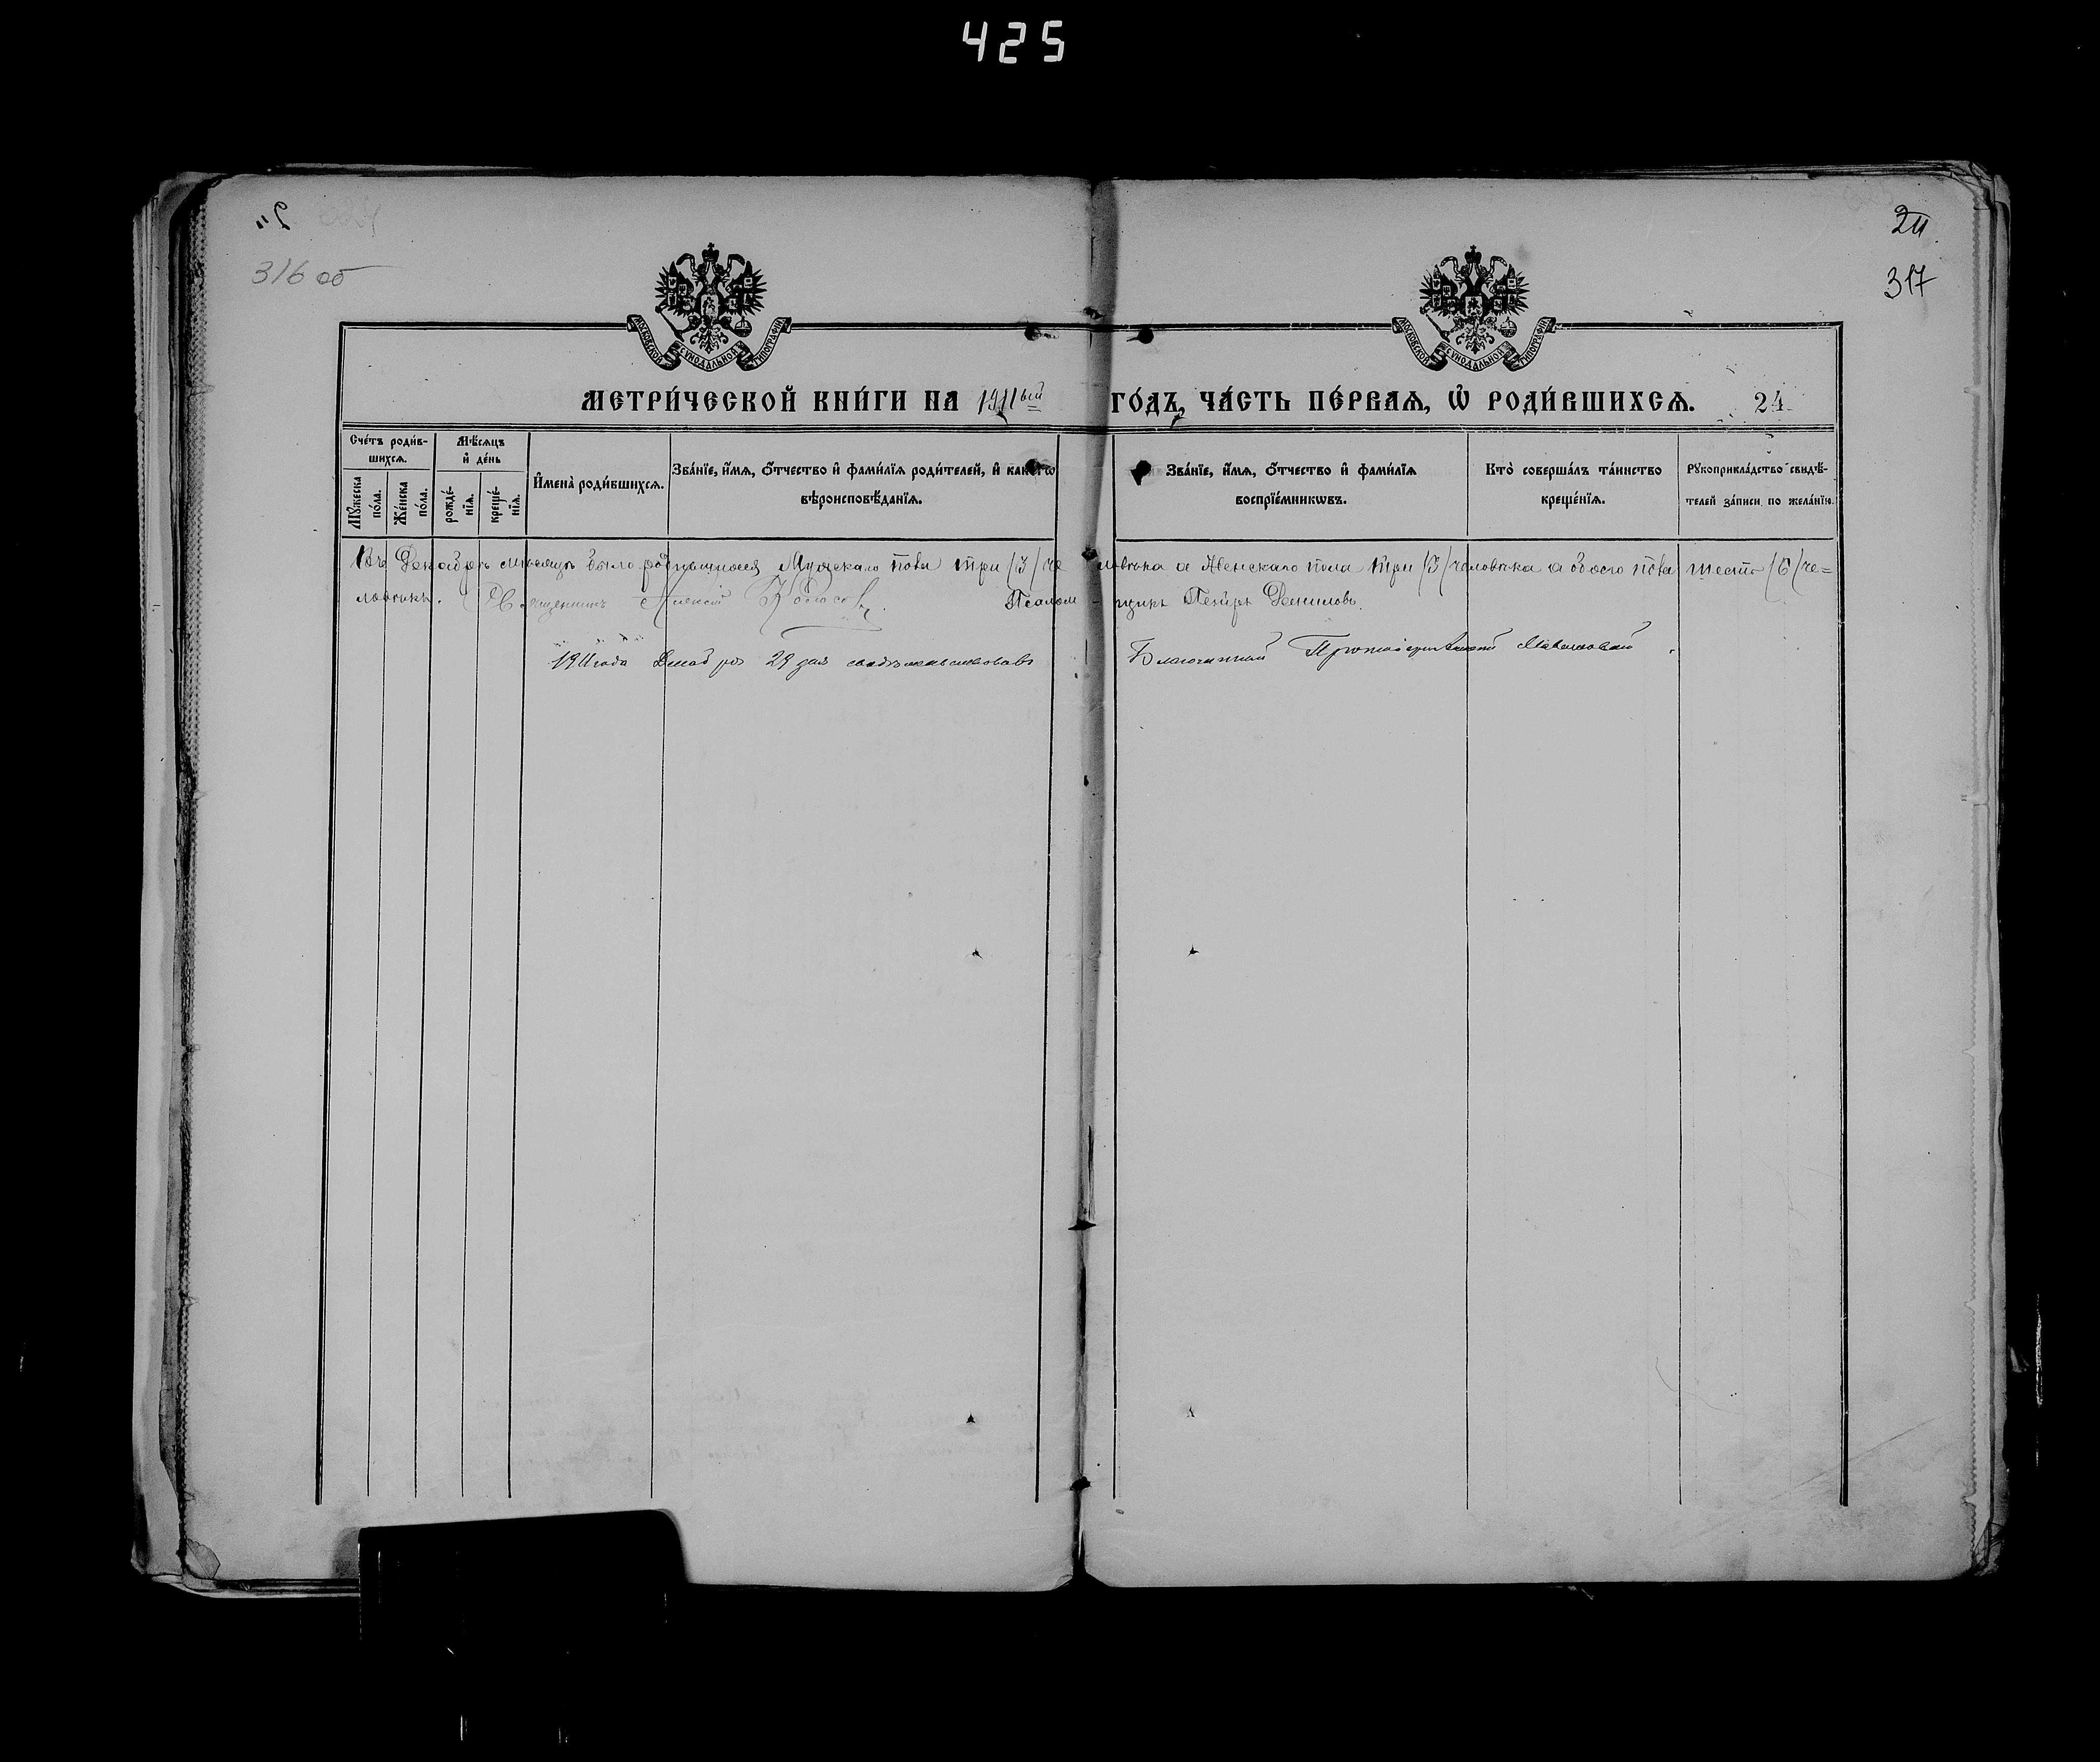 425
316 об
24
317
МОСКОВСКОЙ СУНОДАЛЬНОЙ ТИПОГРАФІИ
МОСКОВСКОЙ СУНОДАЛЬНОЙ ТИПОГРАФІИ
МЕТРИ́ЧЕСКОЙ КНИ́ГИ НА 1911ый ГО́ДЪ, ЧА́СТЬ ПЕ́РВАѦ, Ѡ҆ РОДИ́ВШИХСѦ. 24
Сче́тъ роди́в-
шихсѧ.
Мѣ́сѧцъ
и҆ де́нь
Мꙋ́жеска по́ла.
Же́нска по́ла.
рожде́-нїѧ.
креще́-нїѧ.
И҆мена̀ роди́вшихсѧ.
Зва́нїе, и҆́мѧ, ѻ҆́тчество и҆ фами́лїѧ роди́телей, и҆ како́гѡ
вѣроисповѣ́данїѧ.
Зва́нїе, и҆́мѧ, ѻ҆́тчество и҆ фами́лїѧ
воспрїе́мникѡвъ.
Кто̀ соверша́лъ та́инство
креще́нїѧ.
Рꙋкоприкла́дство свидѣ́-
телей за́писи по жела́нїю.
Въ Декабрѣ мѣсяцѣ было родившихся Мужскаго пола три /3/ че ловѣка а Женскаго пола три /3/ человѣка а обоего пола шесть /6/ че=
ловѣкъ. Священникъ Алексій Псалом - щикъ Петръ Даниловъ.
1911 года Декабря 29 дня свидѣтельствовалъ Благочинный Протоіерей